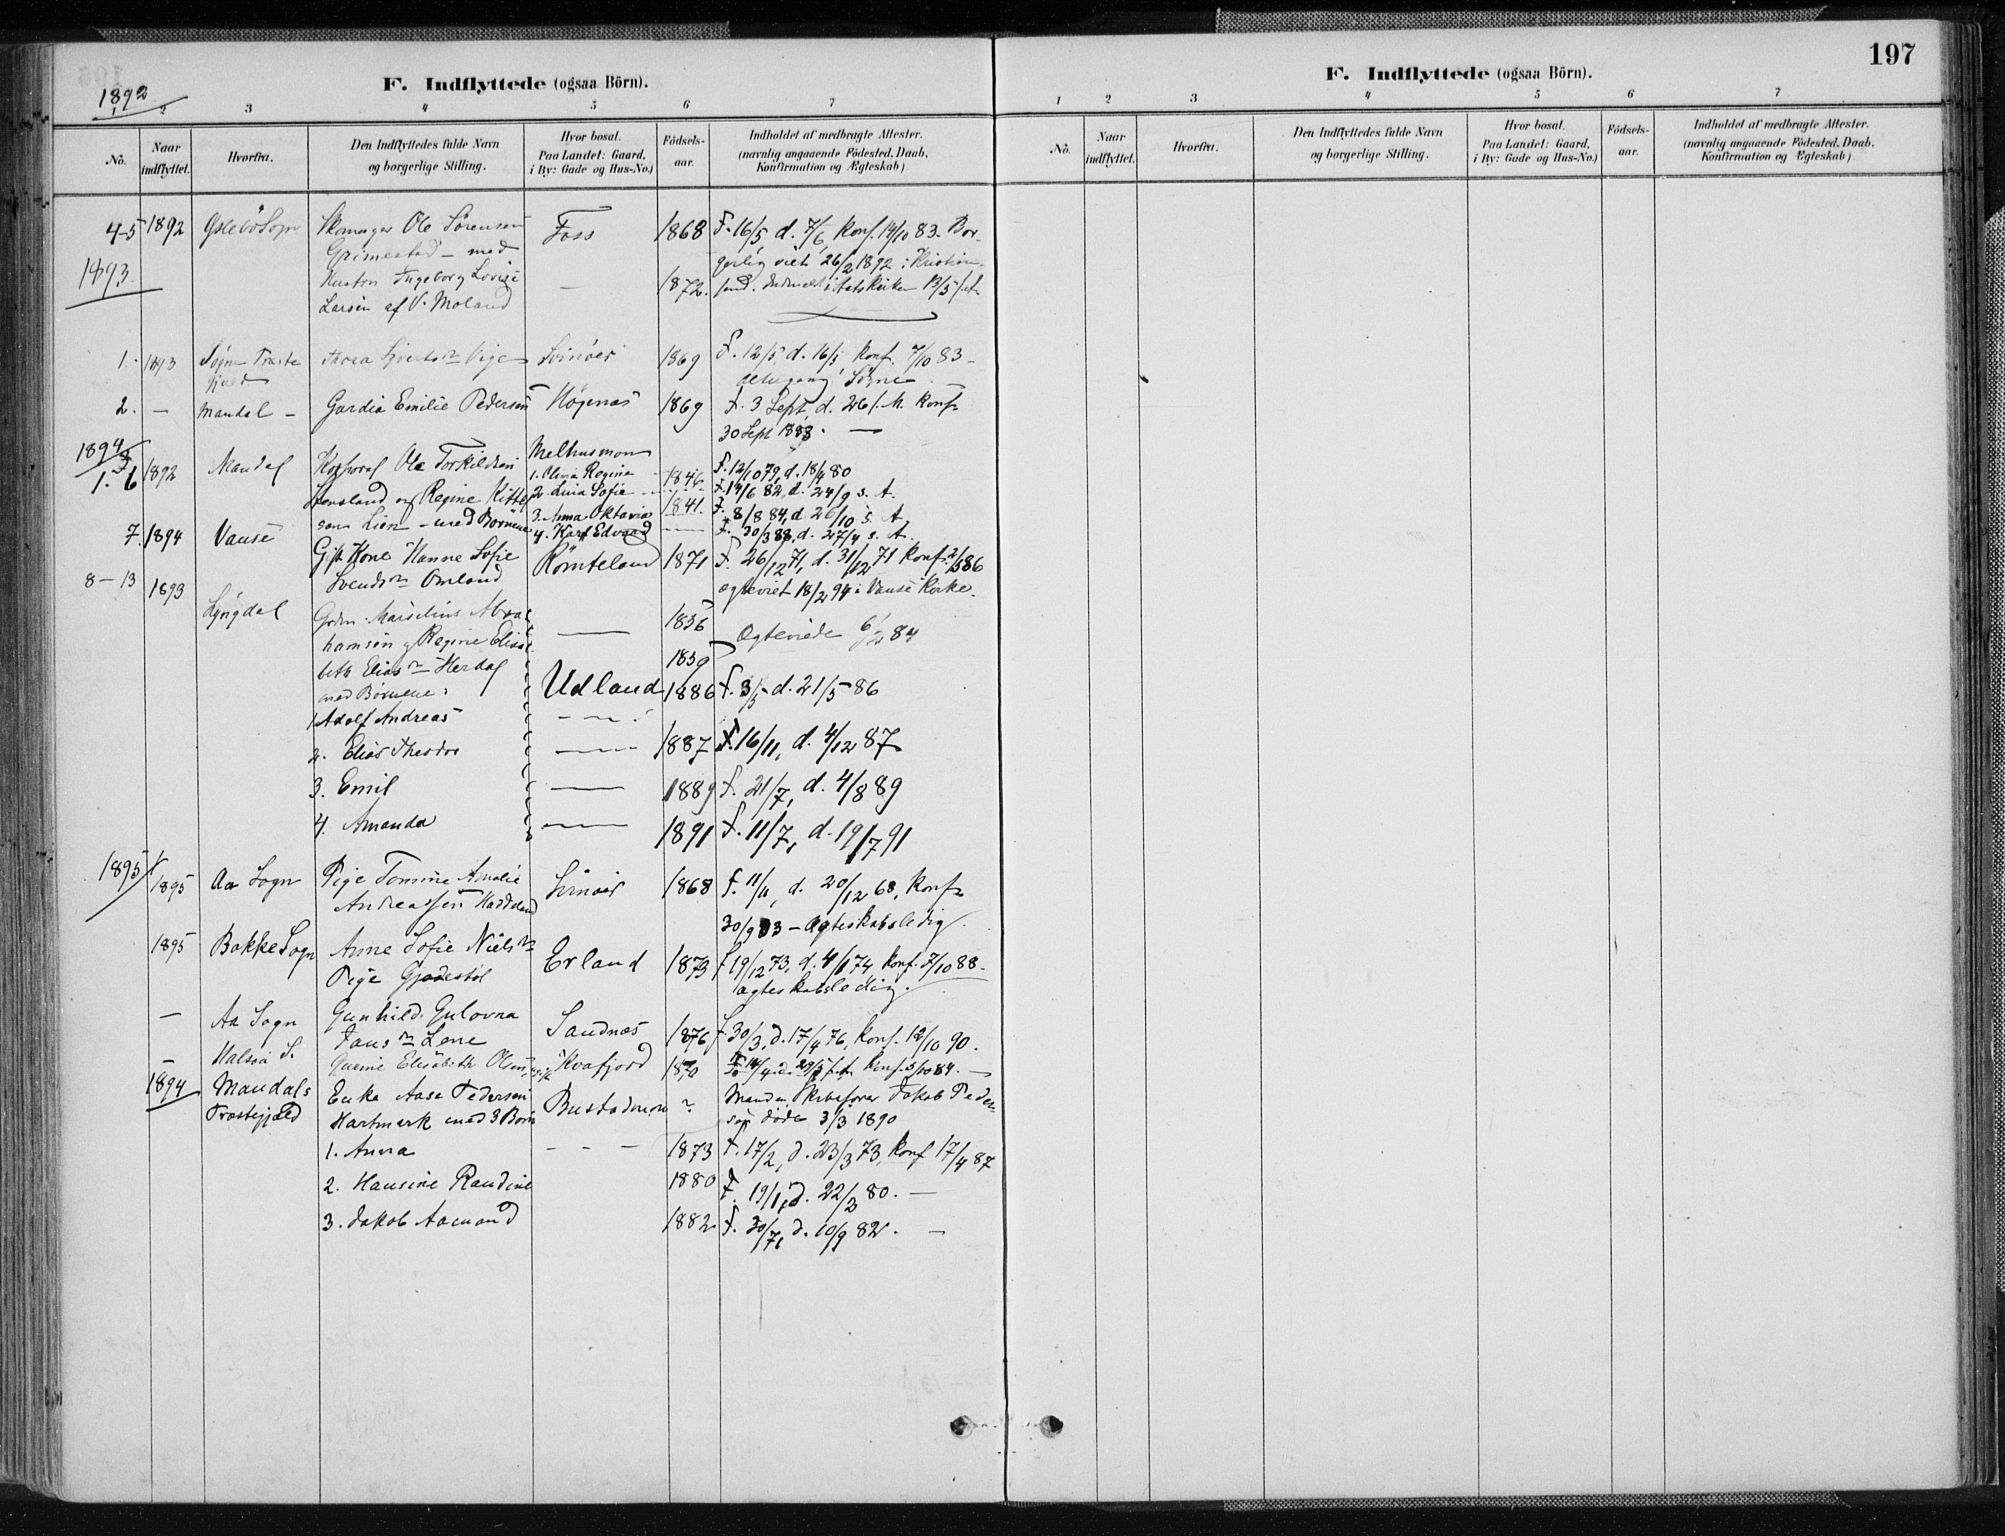 197
F. Indflyttede (ogsaa Börn).
1892
1 2 3 4 5 6 7
No.
Naar indflyttet.
Hvorfra.
Den Indflyttedes fulde Navn og borgerlige Stilling.
Hvor bosat. Paa Landet: Gaard, i By: Gade og Hus-No.)
Fødsels-aar.
Indholdet af medbragte Attester. (navnlig angaaende Födested, Daab, Konfirmation og Ægteskab)
4-5 1892 Sogn Skomager Ole Sörensen Foss 1868 F. 16/5 d. 7/6, Konf. 14/10 83. Bor-
Grimestad - med gerlig viet 26/2 1892 i Kristian-
1893
Ingeborg Lovise — 1872. sand. 13/5
Larsen af V. Moland
1. 1893 Søgne Præste Vige Svinöer 1869 F. 12/5 d. 16/5 Konf. 7/10 83 -
gjeld Søgne
2. — Mandal - Gardia Emilie Pedersen Högenæs 1869 F. 3 Sept, d. 26 s. M. Konf.
30 Sept 1883. —
1894
Melhusmoen
1. 6 1892 Mandal Ole Torkildsen 1. Olivia Regine 1846 F. 12/10 79, d. 18/4 80
og Regine Kittel 2. Lina Sofie 1841. F. 14/6 82, d. 24/9 s. A.
sen Lien - med Börnene 3. Anna Oktavia F. 8/8 84, d. 26/10 s. A.
4. Karl Edvard — F. 30/3 88, d. 27/4 s. A.
7. 1894 Vanse Gift Kone Hanne Sofie Römteland 1871 F. 26/12 71, d. 31/12 71 Konf. 2/5 86
Svends Omland ægteviet 18/2 94 i Vanse Kirke.
8-13 1893 Lyngdal Marselius Abra — 1856 Ægteviede 6/2 84
hamsen og Regine Elisa 1859
beth Elias Herdal
med Börnene: Udland 1886 F. 3/5 d. 21/5 86
1. Adolf Andreas
2. Elias Theodor — 1887 F. 16/11, d. 4/12 87
3. Emil — 1889 F. 21/7, d. 4/8 89
4. Amanda — 1891 F. 11/7, d. 19/7 91
1895
1895 Aa Sogn Pige Tomine Amalie Svinöer 1868 F. 11/11, d. 20/12 68, Konf.
Andreassen Haddeland 30/9 83 - Ægteskabsledig.
1895 Bakke Sogn Anne Sofie Niels Erland 1873 f 19/12 73, d. 4/1 74, Konf. 7/10 88.
Pige Gjedestöl ægteskabsledig.
— Aa Sogn Gunhild Gulovna Sandnæs 1876 f. 30/3, d. 17/4 76, Konf. 12/10 90.
Lene
— Halsaa S. Elisabeth Olsen, Kvafjord 1870 Konf. 5/10 84. —
1894 Mandals Enke Aase Pedersen Bustadmoen ~ Manden, Jakob Peder-
Præstegjæld Hartmark med 3 Börn sen døde 3/3 1890
1. Anna — — — 1873 F. 17/2, d. 23/3 73, Konf 17/4 87
2. Hansine Randine 1880 F. 19/1, d. 22/2 80. —
3. Jakob Aamund 1882 F. 30/7, d. 10/9 82. —
F. Indflyttede (ogsaa Börn).
1 2 3 4 5 6 7
No.
Naar indflyttet.
Hvorfra.
Den Indflyttedes fulde Navn og borgerlige Stilling.
Hvor bosat. Paa Landet: Gaard, i By: Gade og Hus-No.)
Fødsels-aar.
Indholdet af medbragte Attester. (navnlig angaaende Födested, Daab, Konfirmation og Ægteskab)